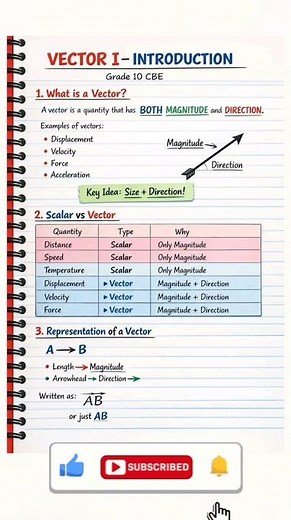 VECTOR I – INTRODUCTION
Grade 10 CBE
1. What is a Vector?
A vector is a quantity that has BOTH MAGNITUDE and DIRECTION.
Examples of vectors:
• Displacement
• Velocity
• Force
• Acceleration
Magnitude →
Direction
Key Idea: Size + Direction!
2. Scalar vs Vector
Quantity Type Why
Distance Scalar Only Magnitude
Speed Scalar Only Magnitude
Temperature Scalar Only Magnitude
Displacement ▸ Vector Magnitude + Direction
Velocity ▸ Vector Magnitude + Direction
Force ▸ Vector Magnitude + Direction
3. Representation of a Vector
A → B
• Length → Magnitude
• Arrowhead → Direction →
Written as: A͞B⃗
or just AB
SUBSCRIBED